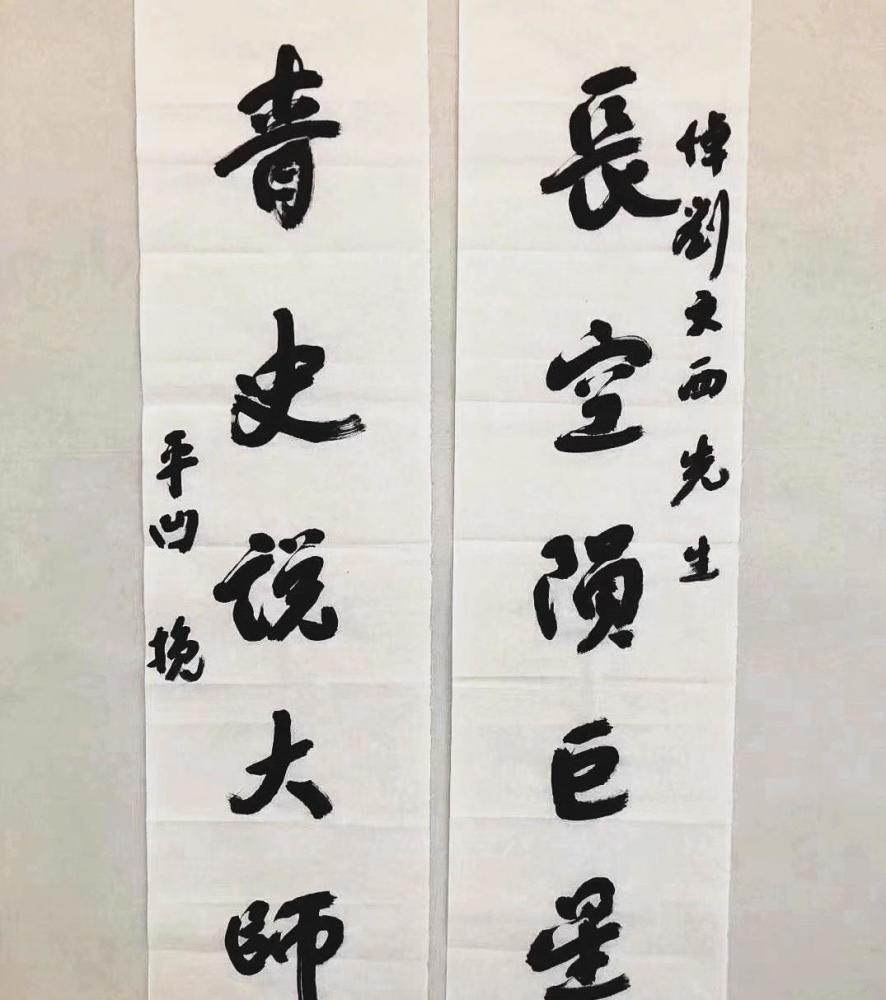 悼劉文西先生
長空隕巨星
青史説大師
平凹 挽